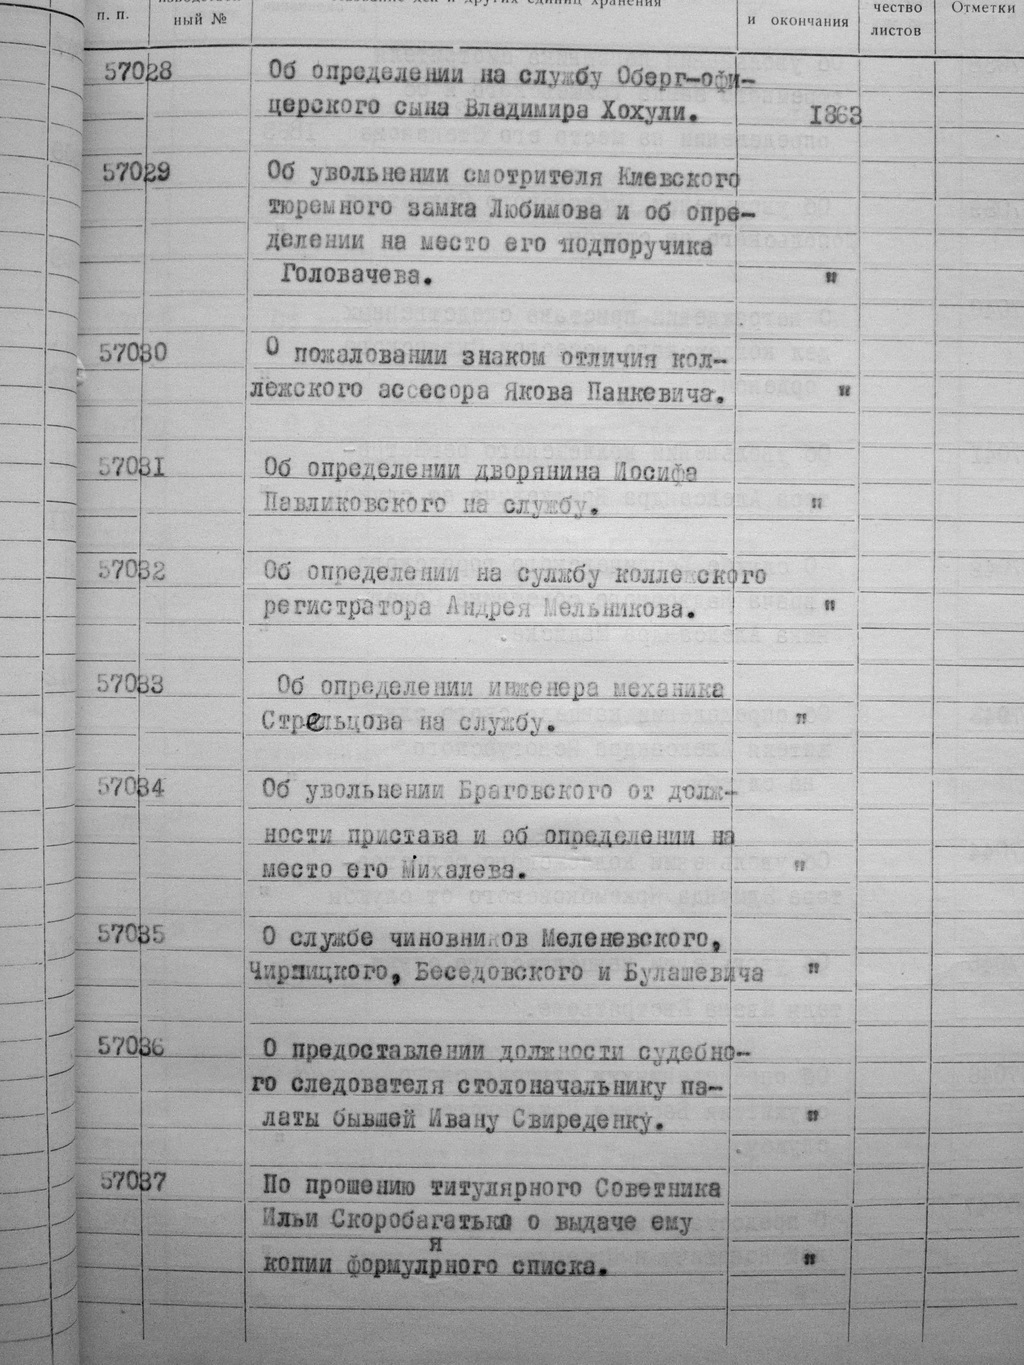 п. п.
ный №
других единиц хранения
и окончания
чество
листов
Отметки
57028 Об определении на службу Оберг-офи-
церского сына Владимира Хохули. 1863
57029 Об увольнении смотрителя Киевского
тюремного замка Любимова и об опре-
делении на место его подпоручика
Головачева. "
57030 О пожаловании знаком отличия кол-
лежского ассесора Якова Панкевича. "
57031 Об определении дворянина Иосифа
Павликовского на службу. "
57032 Об определении на сулжбу колле ского
регистратора Андрея Мельникова. "
57033 Об определении инженера механика
Стрельцова на службу. "
57034 Об увольнении Браговского от долж-
ности пристава и об определении на
место его Михалева. "
57035 О службе чиновников Меленевского,
Чирлицкого, Беседовского и Булашевича "
57036 О предоставлении должности судебно-
го следователя столоначальнику па-
латы бывшей Ивану Свиреденку. "
57037 По прошению титулярного Советника
Ильи Скоробагатько о выдаче ему
копии формулярного списка. "